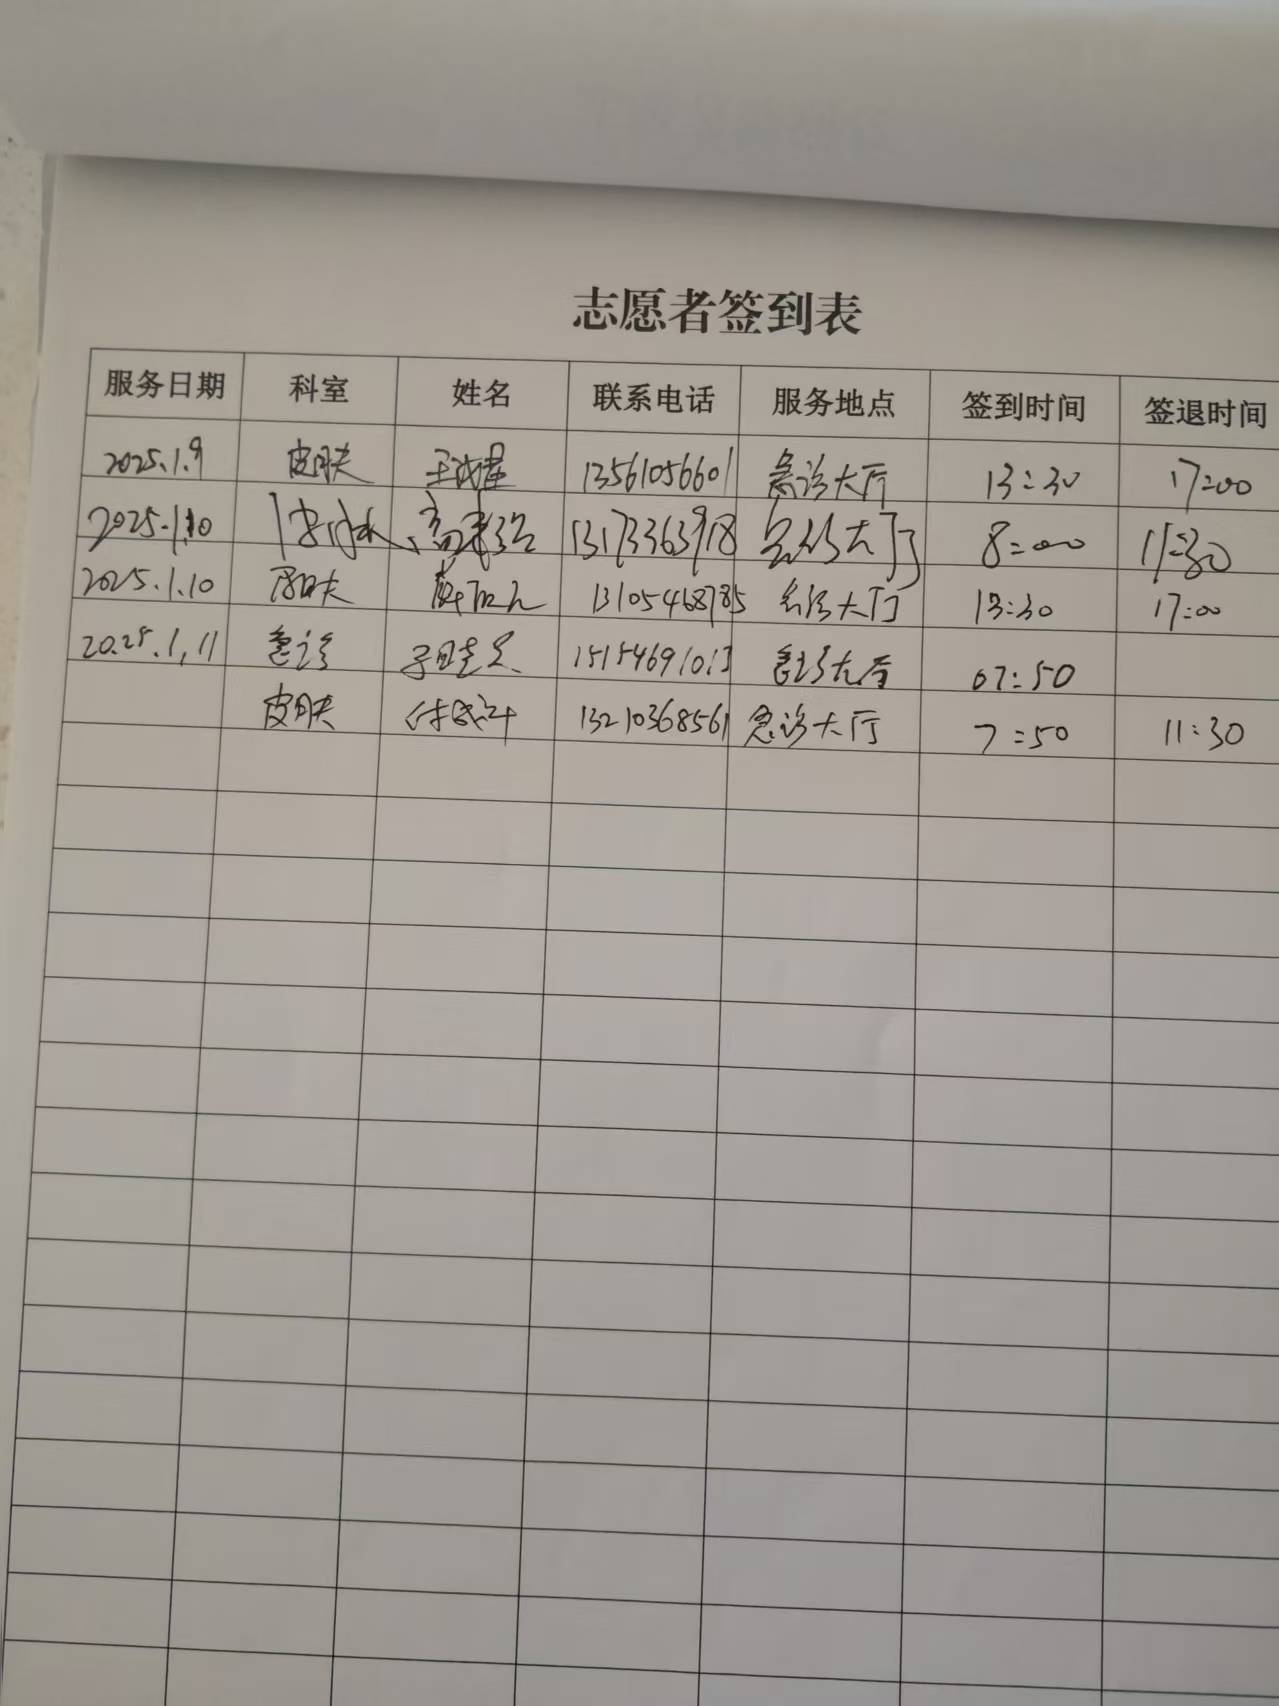 志愿者签到表
服务日期 科室 姓名 联系电话 服务地点 签到时间 签退时间
2025.1.9 皮肤 13561056601 急诊大厅 13:30 17:00
2025.1.10 13173363918 急诊大厅 8:00 11:30
2025.1.10 皮肤 13105468785 急诊大厅 13:30 17:00
2025.1.11 急诊 15154691013 急诊大厅 07:50
皮肤 13210368561 急诊大厅 7:50 11:30